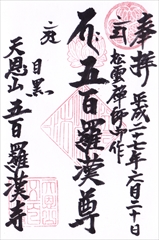 奉拝
平成二十七年六月二十日
松雲禅師御作
五百羅漢尊
目黒
天恩山五百羅漢寺